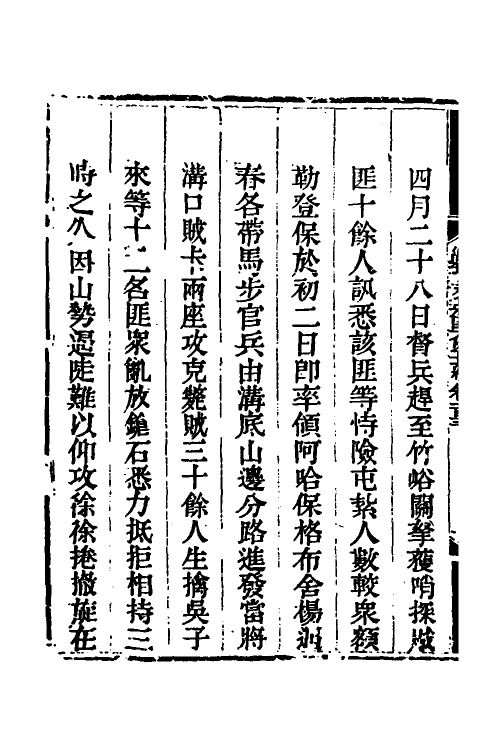 四月二十八日督兵趕至竹峪關拏獲哨探賊
匪十餘人訊悉該匪等恃險屯紮人數較衆額
勒登保於初二日卽率領阿哈保格布舍楊遇
春各帶馬步官兵由溝底山邊分路進發當將
溝口賊卡兩座攻克斃賊三十餘人生擒吳子
來等十二名匪衆亂放鎗石悉力抵拒相持三
時之久因山勢過陡難以仰攻徐徐捲撤旋在